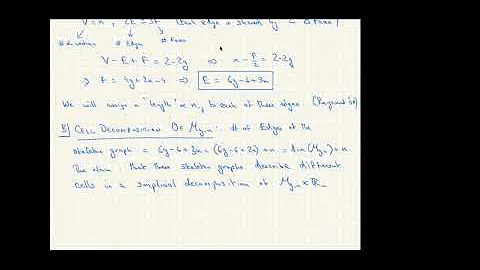 V = n , 2E = 3F (each edge is shared by 2 faces)
# Edges # Faces
V - E + F = 2 - 2g ⇒ n - F/2 = 2 - 2g
⇒ F = 4g + 2n - 4 ⇒ E = 6g - 6 + 3n
We will assign a "length" to each of these edges
B) CELL DECOMPOSITION OF Mg,n : # of Edges of the
skeleton graph = 6g - 6 + 3n = (6g - 6 + 2n) + n = dim(Mg,n) + n
The claim : that these skeleton graphs describe different
cells in a simplicial decomposition of Mg,n x R